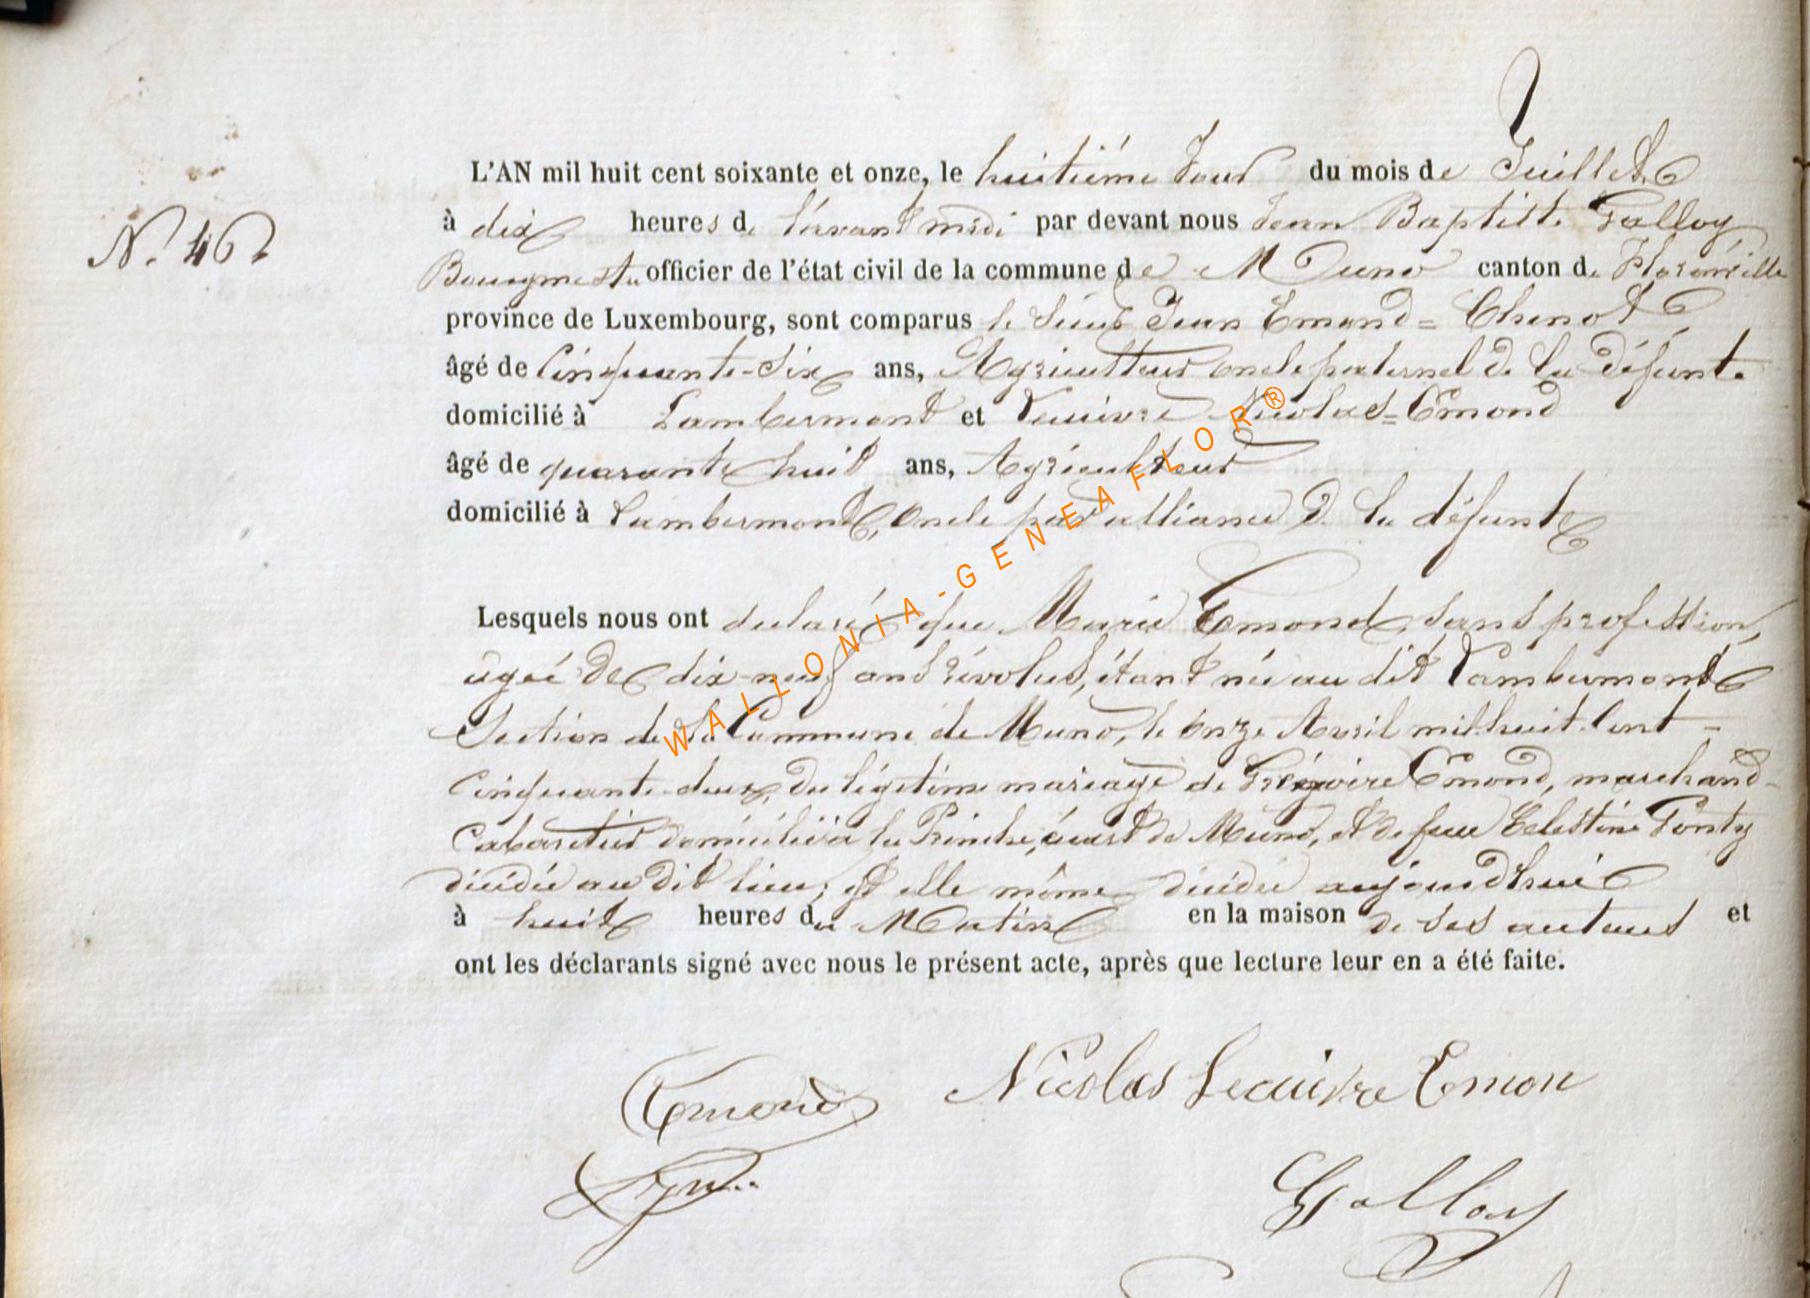 L'AN mil huit cent soixante et onze, le huitième Jour du mois de Juillet
N.° 46
à dix heures de l'avant midi par devant nous Jean Baptiste Galloy
Bourgmestre officier de l'état civil de la commune de Muno canton de Florenville
province de Luxembourg, sont comparus le Sieur Jean Emond=Chenot
âgé de Cinquante-six ans, Agriculteur oncle paternel de la défunte
domicilié à Lambermont et Lecuivre Nicolas=Emond
âgé de quarante huit ans, Agriculteur
domicilié à Lambermont, oncle par alliance de la défunte
Lesquels nous ont déclaré que Marie Emond, sans profession,
agée de dix-neuf ans révolus, étant née au dit Lambermont
Section de la Commune de Muno, le onze Avril mil huit Cent =
Cinquante-deux, du légitime mariage de Grégoire Emond, marchand-
Cabaretier domicilié à la écart de Muno, et de feue Celestine Ponty
décédée au dit lieu; est elle même décédée aujourd'hui
à huit heures du Matin en la maison de ses auteurs et
ont les déclarants signé avec nous le présent acte, après que lecture leur en a été faite.
Emond Nicolas Lecuivre Emon
Galloy
WALLONIA-GENEAFLOR®